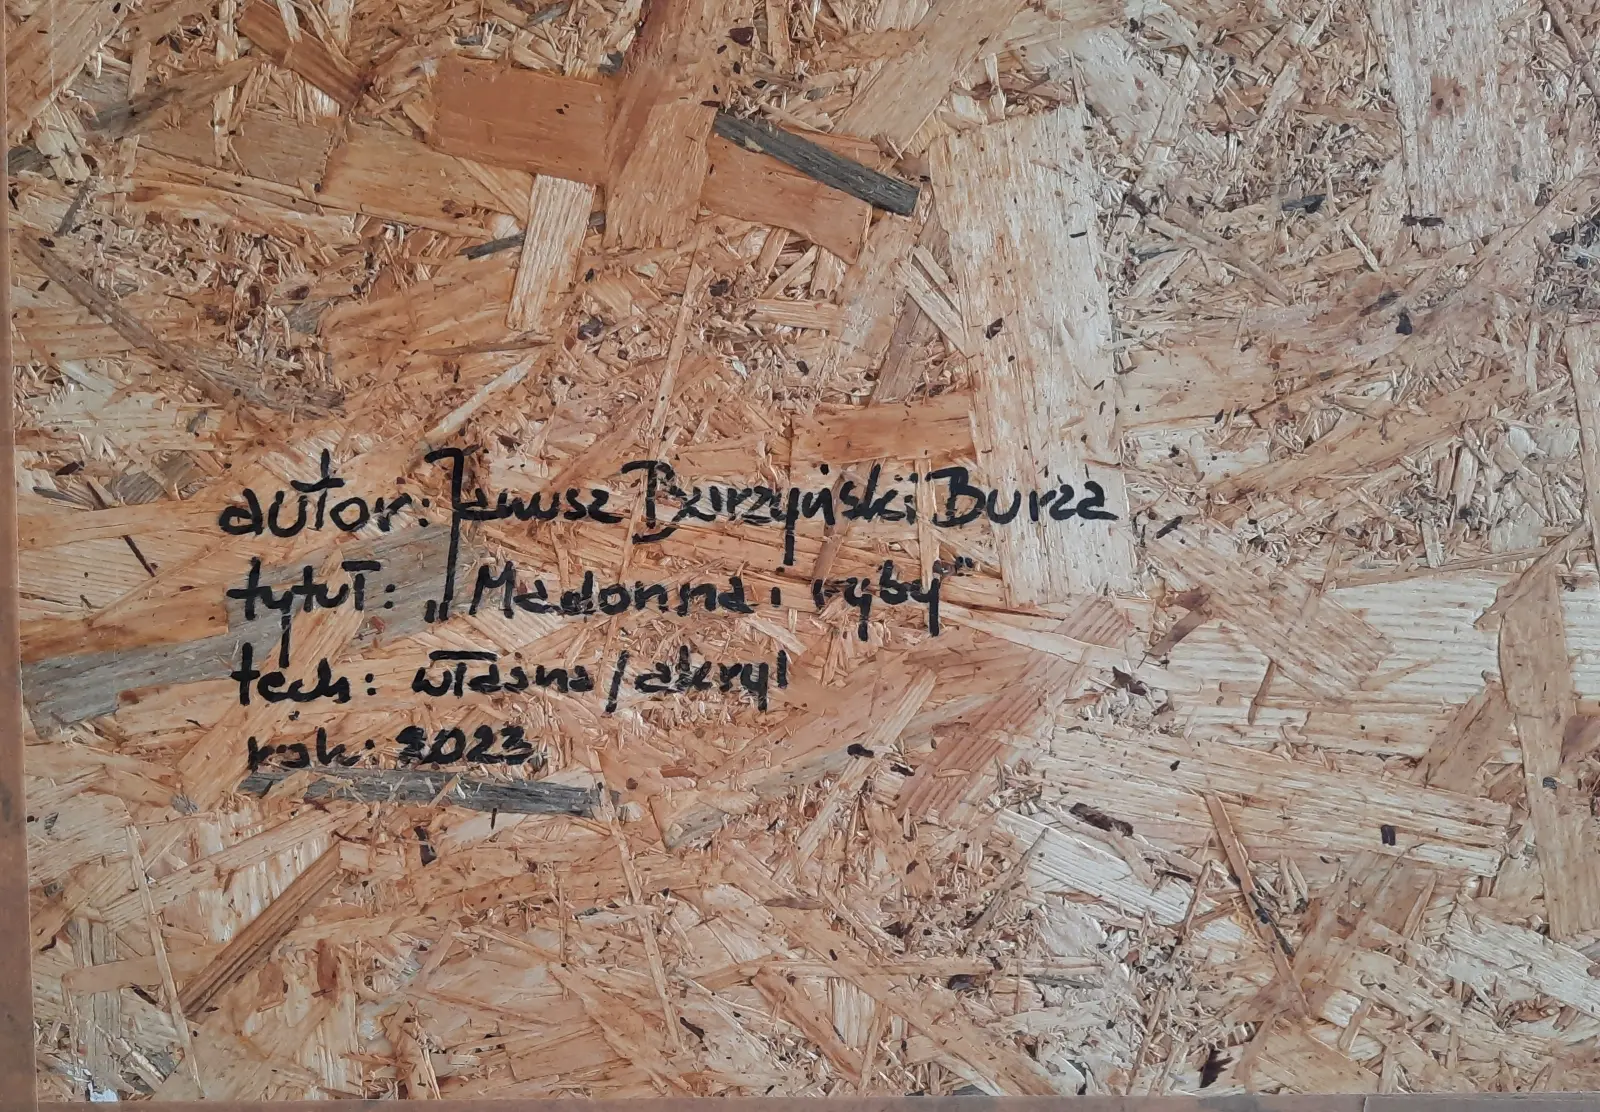 autor: Janusz Burzyński Burza
tytuł: „Madonna i ryby"
tech: własna / akryl
rok: 2023